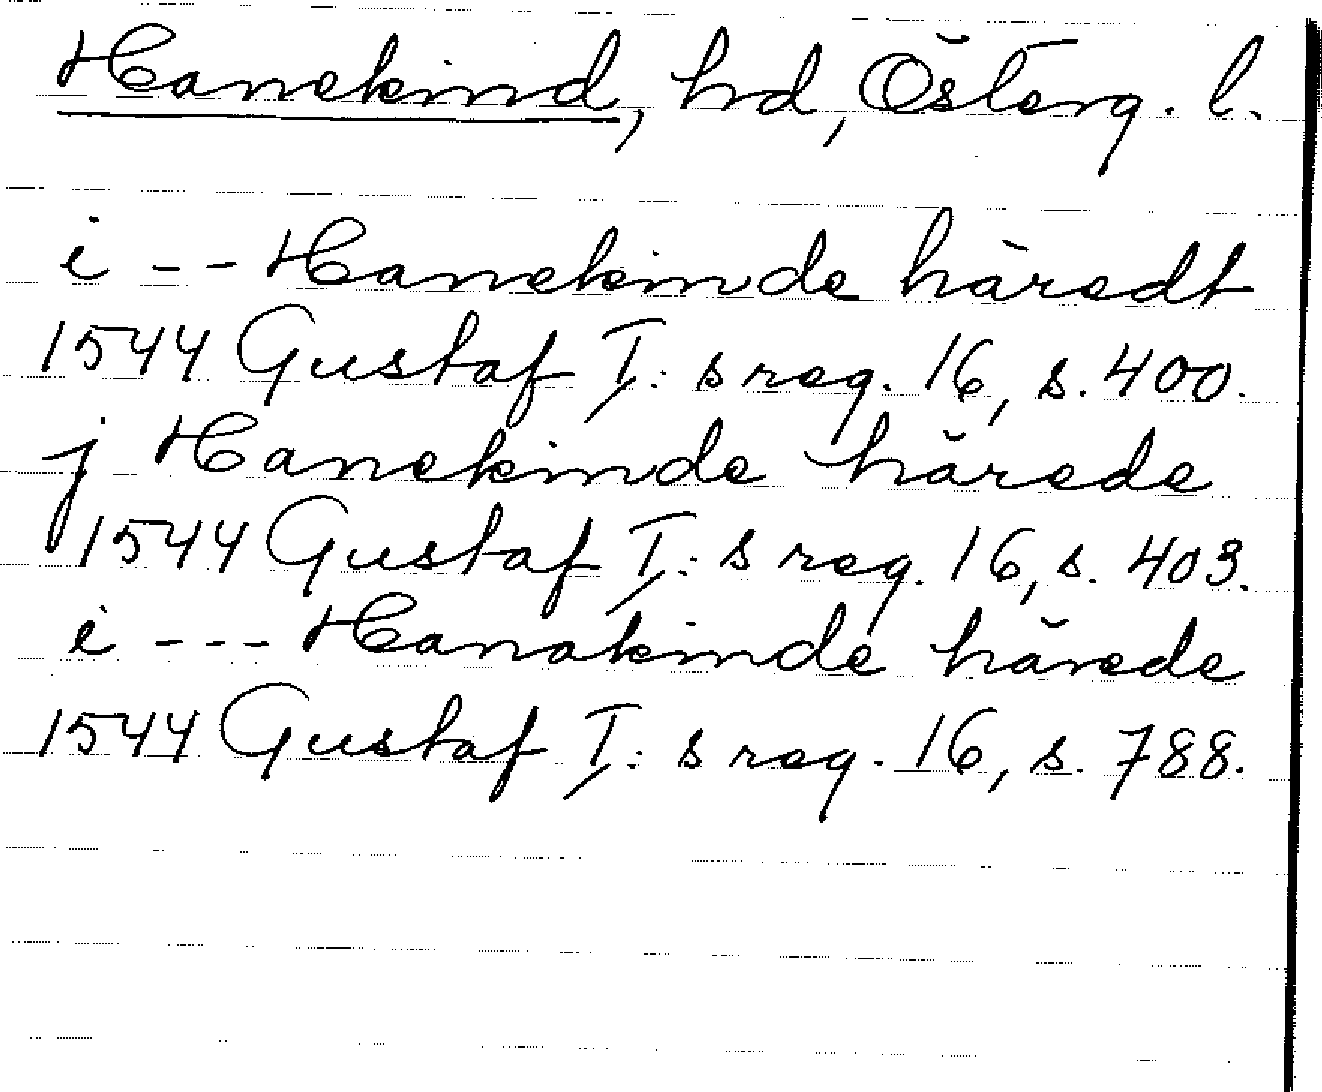 Hanekind, hd, Österg. l.
i -- Hanekinde häredt
1544 Gustaf I: s reg. 16, s. 400.
j Hanekinde härede
1544 Gustaf I: s reg. 16, s. 403.
i --- Hanakinde härede
1544 Gustaf I: s reg. 16, s. 788.